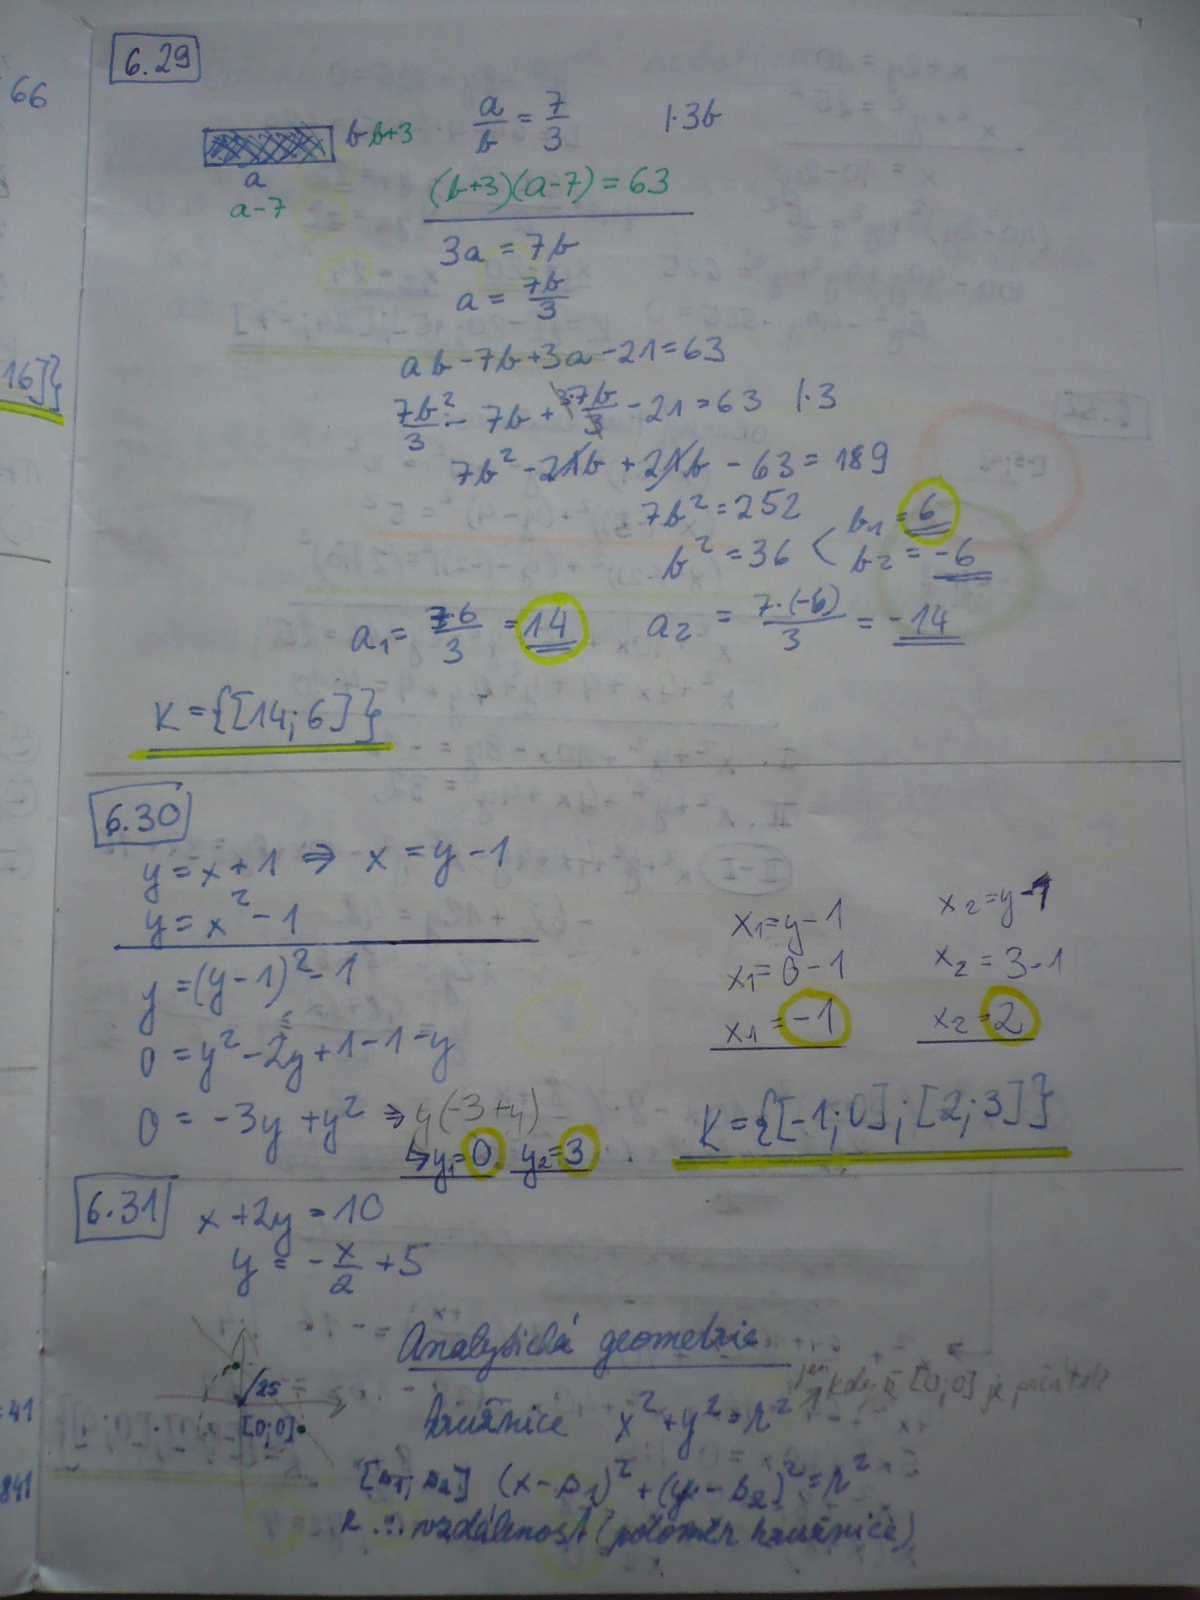 66
16]}
=41
841
6.29
b b+3
a
a-7
a/b = 7/3 |·3b
(b+3)(a-7) = 63
3a = 7b
a = 7b/3
ab - 7b + 3a - 21 = 63
7b²/3 - 7b + 3·7b/3 - 21 = 63 |·3
7b² - 21b + 21b - 63 = 189
7b² = 252
b² = 36 < b₁ = 6
b₂ = -6
a₁ = 7·6/3 = 14 a₂ = 7·(-6)/3 = -14
K = {[14;6]}
6.30
y = x + 1 ⇒ x = y - 1
y = x² - 1
y = (y - 1)² - 1
0 = y² - 2y + 1 - 1 - y
0 = -3y + y² ⇒ y(-3+y)
↳ y₁ = 0 y₂ = 3
x₁ = y - 1
x₁ = 0 - 1
x₁ = -1
x₂ = y - 1
x₂ = 3 - 1
x₂ = 2
K = {[-1;0];[2;3]}
6.31
x + 2y = 10
y = -x/2 + 5
25
[0;0]
Analytická geometrie
kružnice x² + y² = r² jen když [0;0] je počátek
[s₁; s₂] (x - s₁)² + (y - s₂)² = r²
r ... vzdálenost (poloměr kružnice)